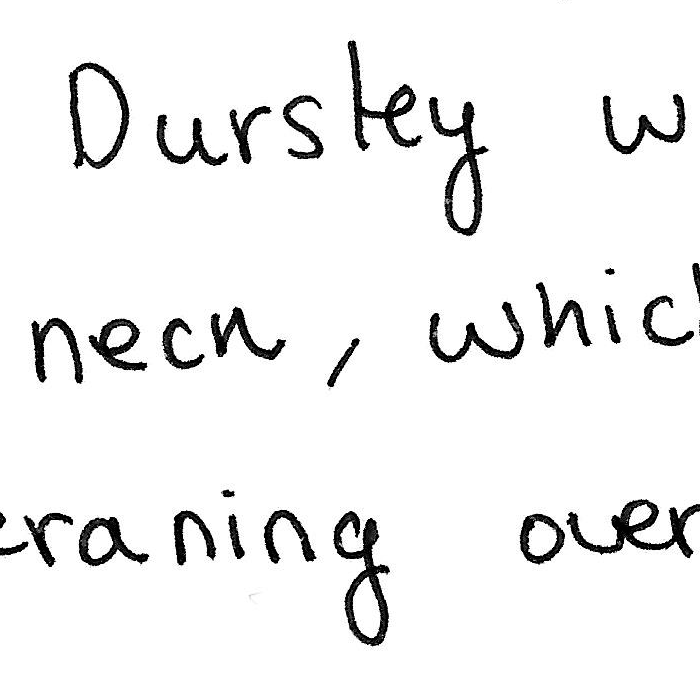 Dursley w
neck, which
craning over